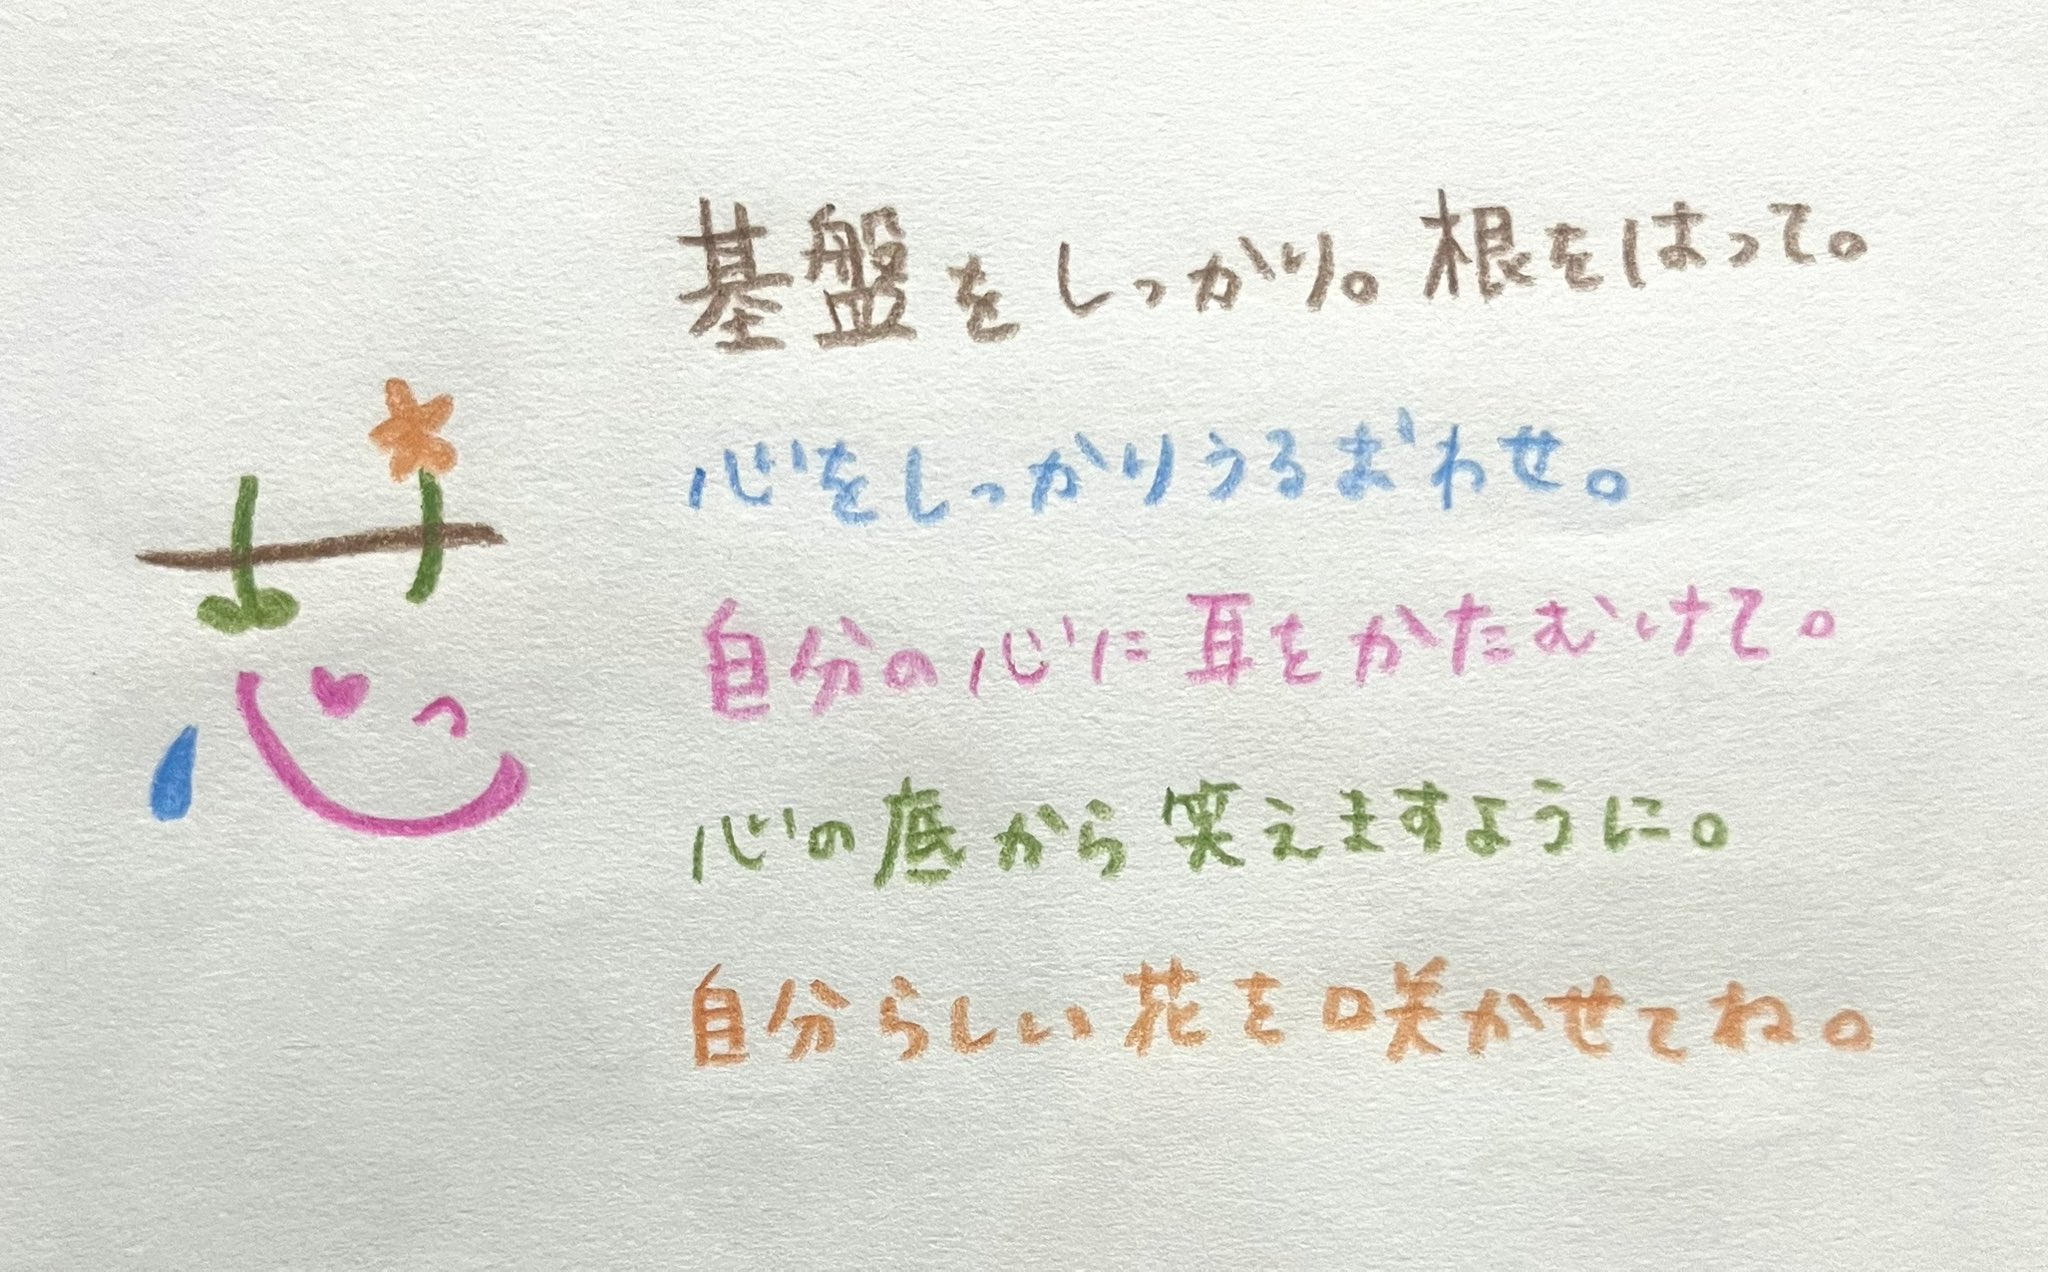 芯
基盤をしっかり。根をはって。
心をしっかりうるおわせ。
自分の心に耳をかたむけて。
心の底から笑えますように。
自分らしい花を咲かせてね。